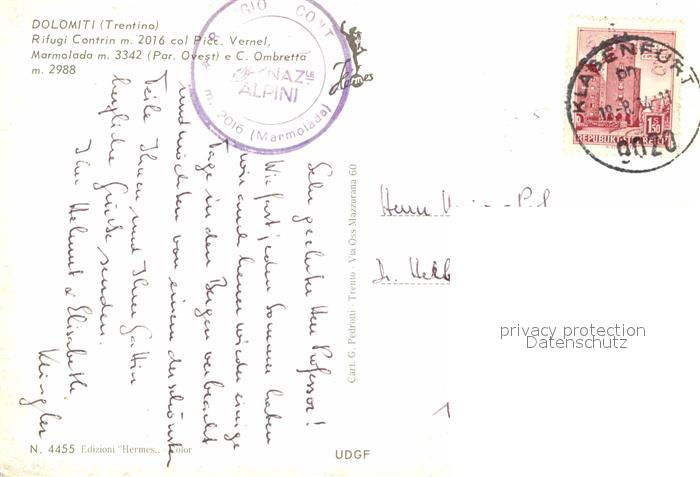 DOLOMITI (Trentino)
Rifugi Contrin m. 2016 col Picc. Vernel,
Marmolada m. 3342 (Par. Ovest) e C. Ombretta
m. 2988
GIO CONT
NAZLE
ALPINI
m. 2016 (Marmolada)
Hermes
KLAGENFURT
18.-8.
9020
1.50
REPUBLIK
Sehr geehrter Herr Professor!
Wie fast jeden Sommer haben
wir auch heuer wieder einige
Tage in den Bergen verbracht
und möchten von einem der schönsten
Teile Ihnen und Ihrer Gattin
herzliche Grüsse senden.
Ihre Helmut & Elisabeth
Klingler
Herrn
Dr.
Cart. G. Pedrotti - Trento - Via Oss Mazzurana 60
privacy protection
Datenschutz
N. 4455 Edizioni "Hermes.. - Color
UDGF